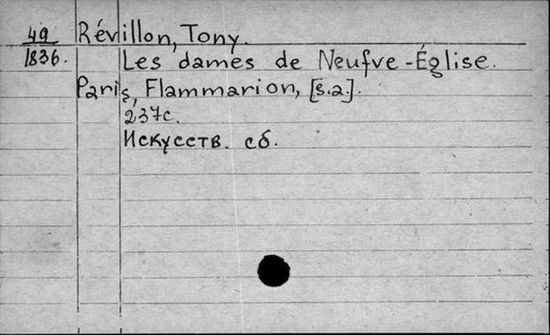 49 Révillon, Tony.
1836. Les dames de Neufve-Église.
Paris, Flammarion, [s.a.].
237с.
Искусств. сб.